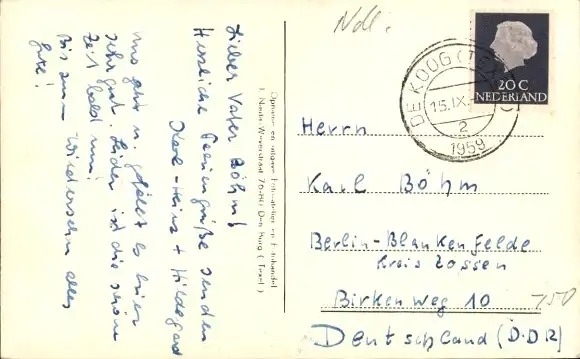 Ndl.
Lieber Vater Böhm!
Herzliche Feriengrüße senden
Karl-Heinz + Hildegard
uns geht u. gefällt es hier
sehr gut. Leider ist die schöne
Zeit bald um!
Bis zum Wiedersehn alles
Gute!
Opname en uitgave Foto-atelier en Fotohandel
J. Nauta Waverstraat 76-80 Den Burg (Texel)
DE KOOG (TEXEL)
15.IX
2
1959
20 C
NEDERLAND
Herrn
Karl Böhm
Berlin-Blankenfelde
Kreis Zossen
Birkenweg 10
750
Deutschland (D.D.R)